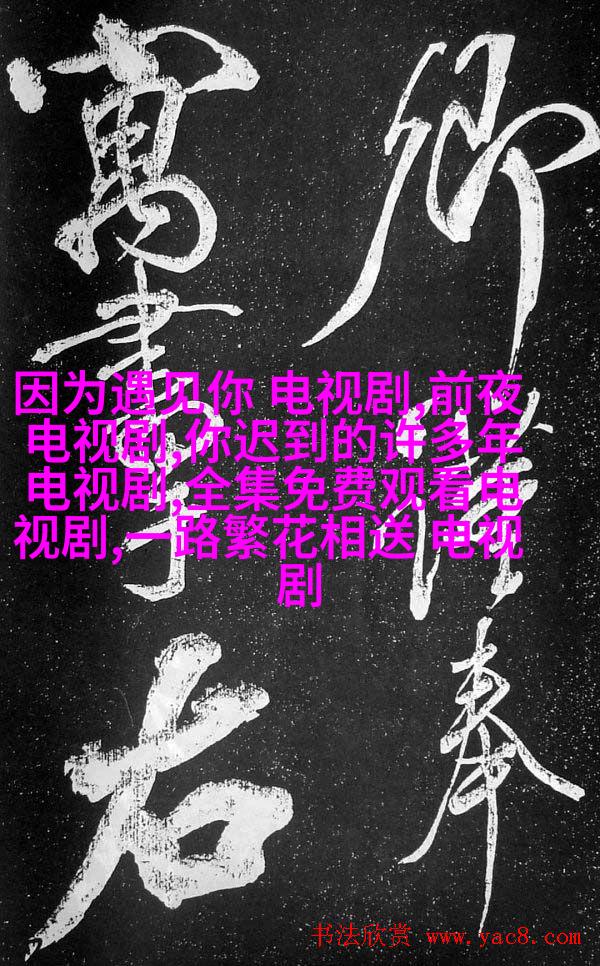 卿奉
寓書右
因为遇见你 电视剧,前夜
电视剧,你迟到的许多年
电视剧,全集免费观看电
视剧,一路繁花相送 电视
剧
书法欣赏 www.yac8.com